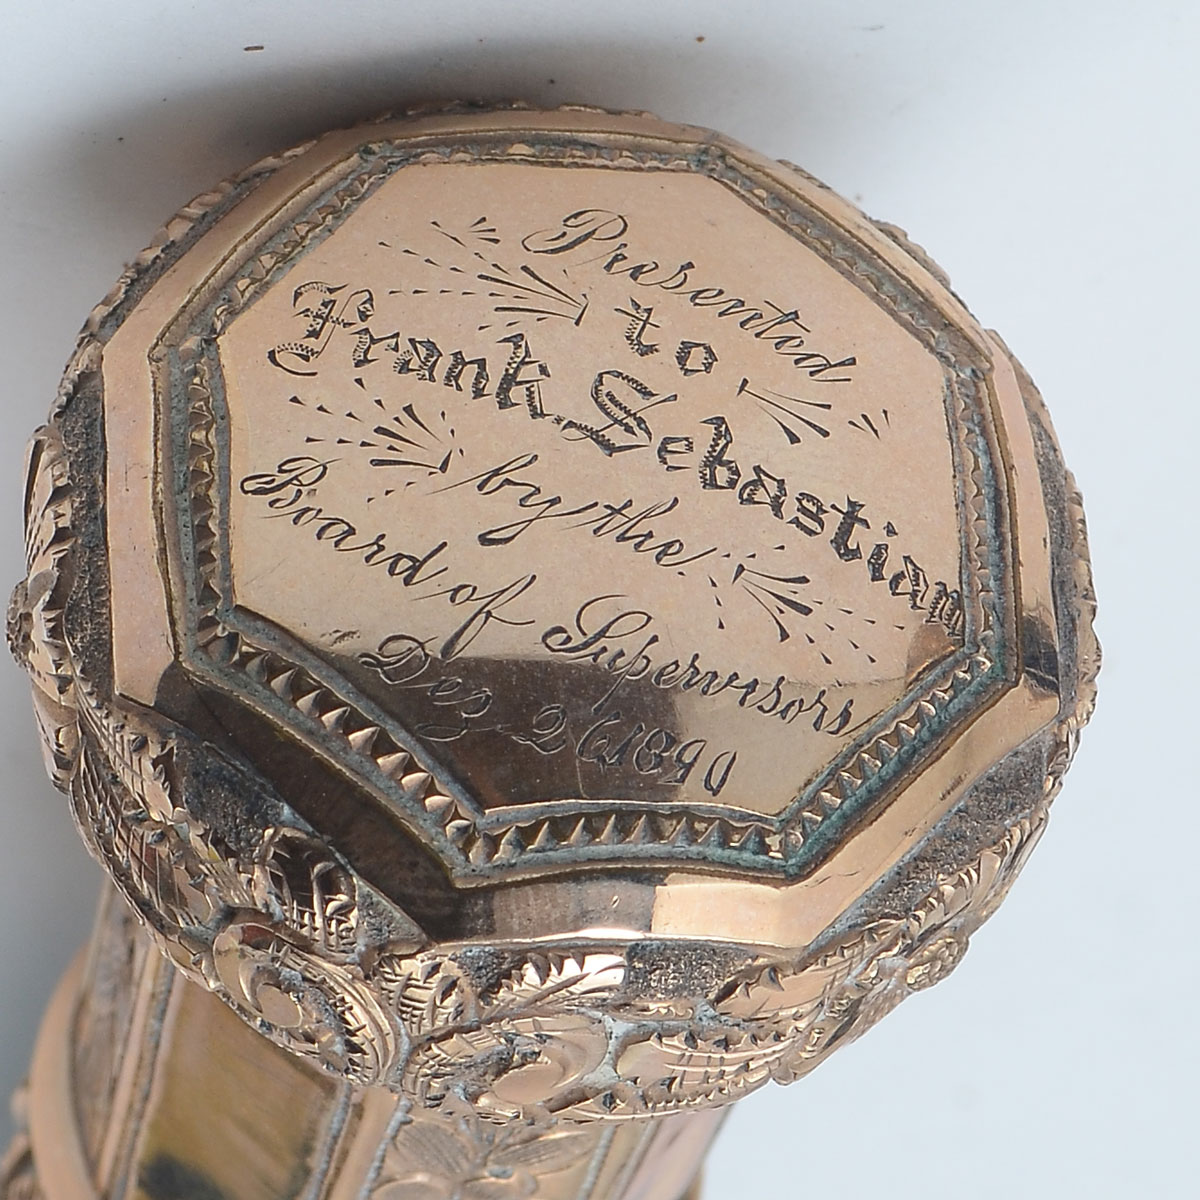 Presented
to
Frank Sebastian
by the
Board of Supervisors
Dez-26 1890